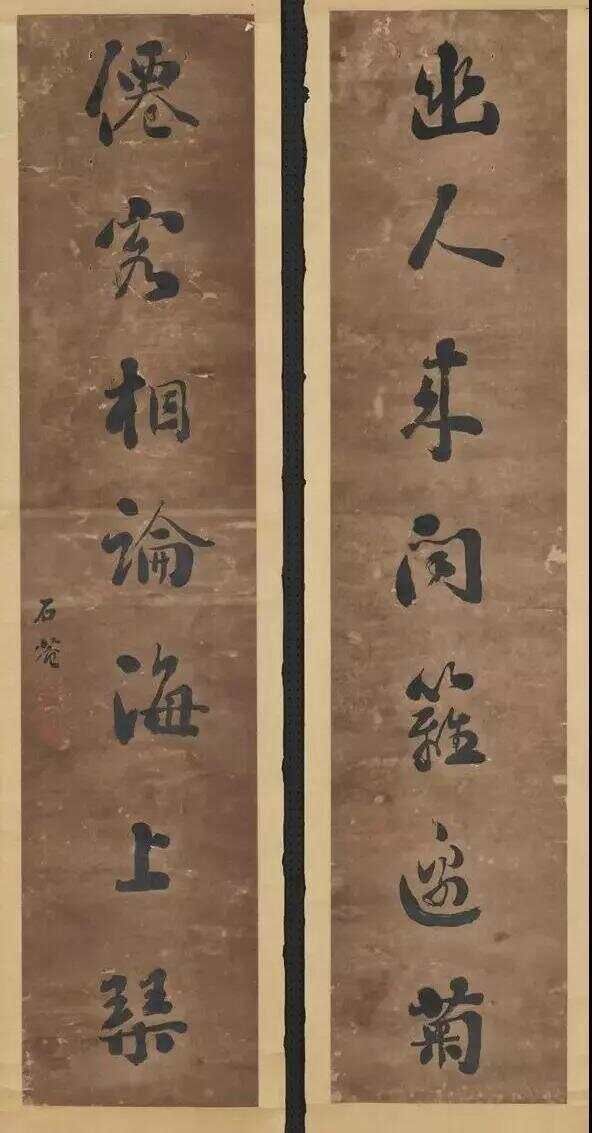 幽人來問籬邊菊
僊客相論海上琹
石菴